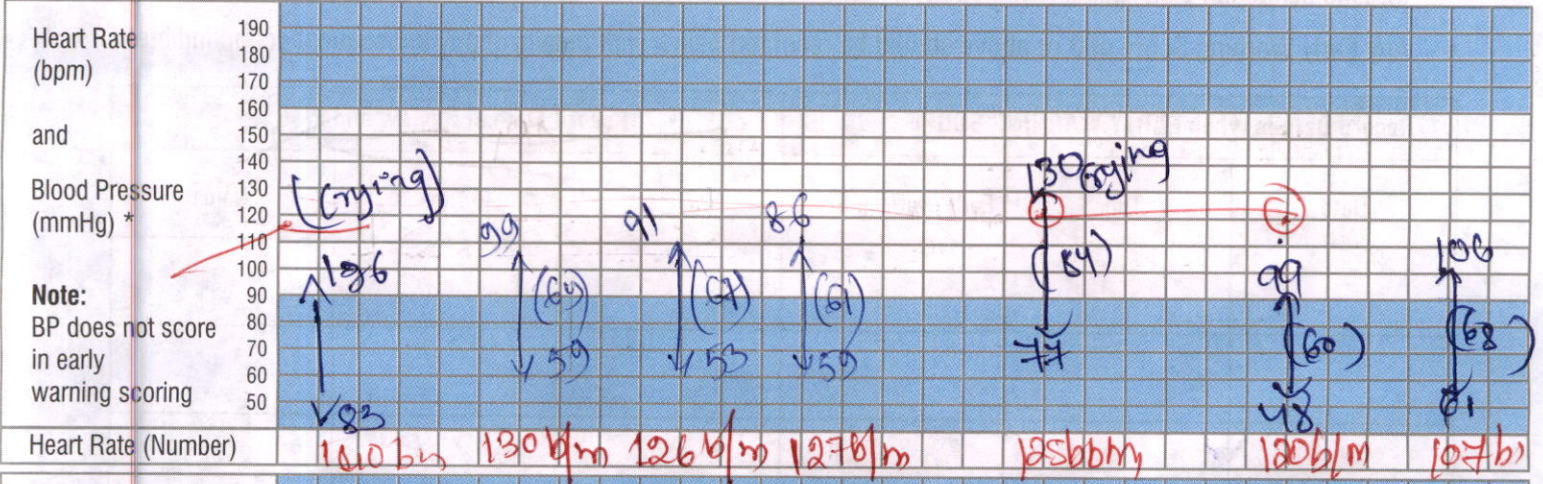 Heart Rate
(bpm)
and
Blood Pressure
(mmHg) *
Note:
BP does not score
in early
warning scoring
190
180
170
160
150
140
130
120
110
100
90
80
70
60
50
(Crying)
83
99
59
91
53
86
(61)
59
130 crying
(84)
77
99
(60)
48
106
(68)
61
Heart Rate (Number) 130b/m 126b/m 127b/m 120b/m